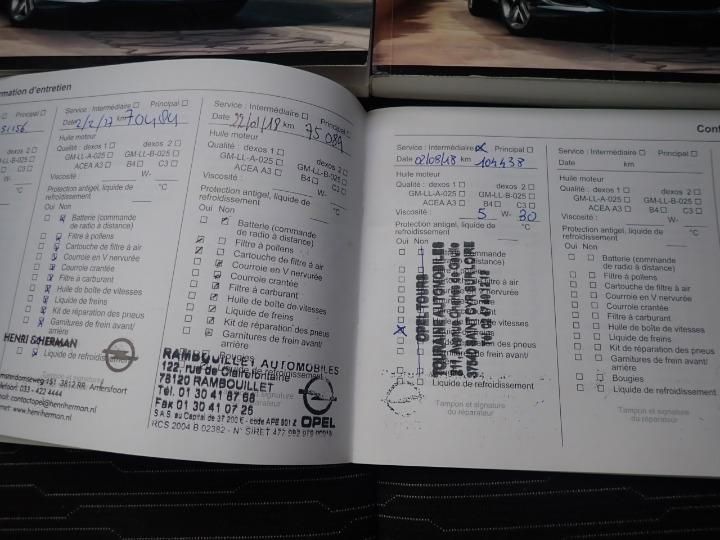 rmation d'entretien
Principal
51156
dexos 2
GM-LL-B-025
C3
W-
°C
Service : Intermédiaire Principal
Date 2/2/17 km 70484
Huile moteur
Qualité : dexos 1 dexos 2
GM-LL-A-025 GM-LL-B-025
ACEA A3 B4 C3
Viscosité : W-
Protection antigel, liquide de
refroidissement °C
Oui Non
Batterie (commande
de radio à distance)
Filtre à pollens
Cartouche de filtre à air
Courroie en V nervurée
Courroie crantée
Filtre à carburant
Huile de boîte de vitesses
Liquide de freins
Kit de réparation des pneus
Garnitures de frein avant/
arrière
Liquide de refroidissement
HENRI HERMAN
151, 3812 RR. Amersfoort
033 - 422 4444
contactopel@henriherman.nl
www.henriherman.nl
Service : Intermédiaire Principal
Date 22/01/18 km 75089
Huile moteur
Qualité : dexos 1 dexos 2
GM-LL-A-025 GM-LL-B-025
ACEA A3 B4 C3
Viscosité : W-
Protection antigel, liquide de
refroidissement °C
Oui Non
Batterie (commande
de radio à distance)
Filtre à pollens
Cartouche de filtre à air
Courroie en V nervurée
Courroie crantée
Filtre à carburant
Huile de boîte de vitesses
Liquide de freins
Kit de réparation des pneus
Garnitures de frein avant/
arrière
Bougies
Liquide de refroidissement
RAMBOUILLET AUTOMOBILES
122, rue de Clairefontaine
78120 RAMBOUILLET
Tél. 01 30 41 87 66
Fax 01 30 41 07 25
S.A.S. au Capital de 37 200 € - code APE 501 Z
RCS 2004 B 02382 - N° SIRET
OPEL
Cont
Service : Intermédiaire Principal
Date 02/08/18 km 104438
Huile moteur
Qualité : dexos 1 dexos 2
GM-LL-A-025 GM-LL-B-025
ACEA A3 B4 C3
Viscosité : 5 W- 30
Protection antigel, liquide de
refroidissement °C
Oui Non
OPEL TOURS
TOURAINE AUTOMOBILES
Liquide de refroidissement
Tampon et signature
du réparateur
Service : Intermédiaire Principal
Date km
Huile moteur
Qualité : dexos 1 dexos 2
GM-LL-A-025 GM-LL-B-025
ACEA A3 B4 C3
Viscosité : W-
Protection antigel, liquide de
refroidissement °C
Oui Non
Batterie (commande
de radio à distance)
Filtre à pollens
Cartouche de filtre à air
Courroie en V nervurée
Courroie crantée
Filtre à carburant
Huile de boîte de vitesses
Liquide de freins
Kit de réparation des pneus
Garnitures de frein avant/
arrière
Bougies
Liquide de refroidissement
Tampon et signature
du réparateur